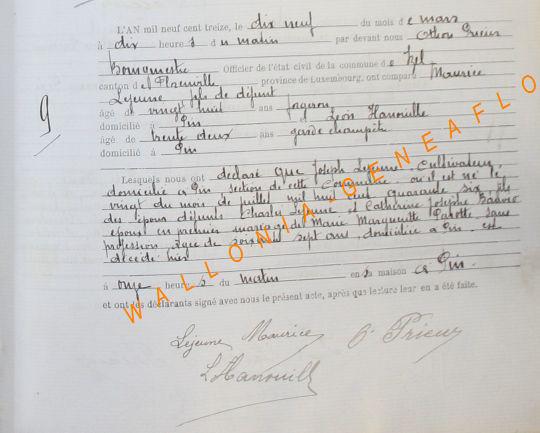 L'AN mil neuf cent treize, le dix neuf du mois de mars
à dix heure s du matin par devant nous Othon Prieur
Bourgmestre Officier de l'état civil de la commune d e
canton d e Florenville province de Luxembourg, ont comparu Maurice
Lejeune fils de défunt
âgé de vingt huit ans
domicilié à et Léon Hanouille
âgé de trente deux ans garde champêtre
domicilié à
9
Lesquels nous ont déclaré que Joseph Lejeune, Cultivateur,
domicilié à section de cette Commune où il est né le
vingt du mois de juillet mil huit cent quarante six, fils
des époux défunts Charles Lejeune et Catherine Josephe
époux en premier mariage de Marie Marguerite sans
profession, âgée de soixante sept ans, domiciliée à est
décédé hier
à onze heure s du matin en sa maison à
et ont les déclarants signé avec nous le présent acte, après que lecture leur en a été faite.
Lejeune Maurice O. Prieur
L Hanouille
WALLONIA GENEAFLO